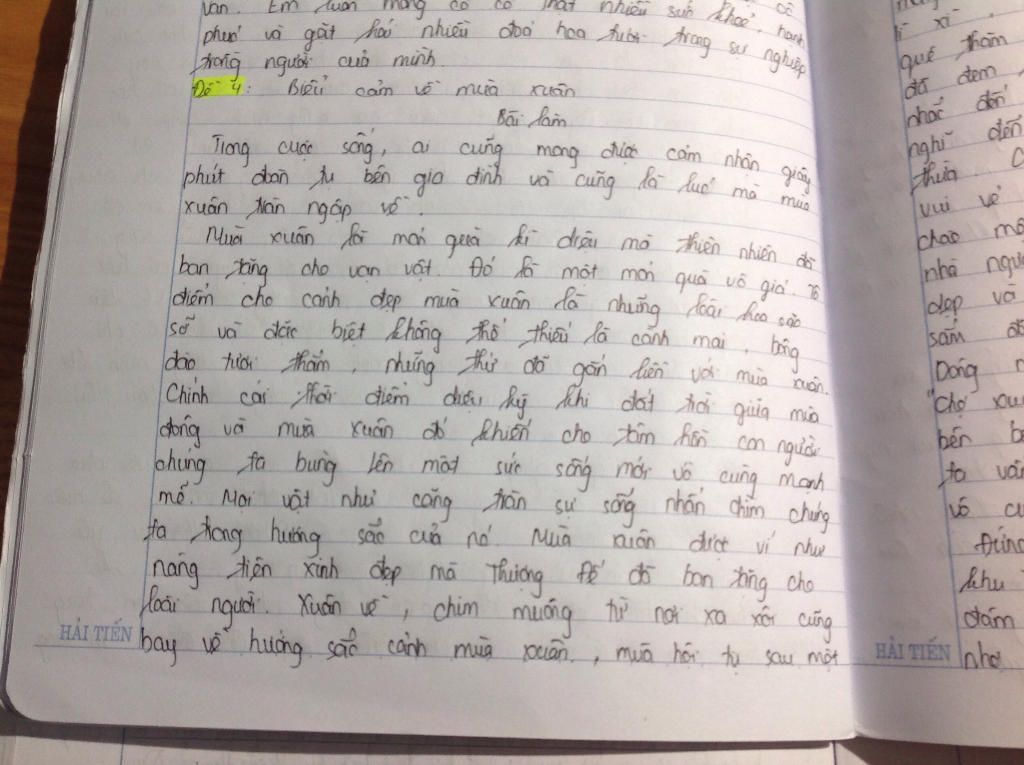 văn. Em luôn mong cô có thật nhiều sức khoẻ, hạnh
phúc và gặt hái nhiều đoá hoa tươi trong sự nghiệp
trồng người của mình.
Đề 4: Biểu cảm về mùa xuân
Bài làm
Trong cuộc sống, ai cũng mong được cảm nhận giây
phút đoàn tụ bên gia đình và cũng là lúc mà mùa
xuân tràn ngập về.
Mùa xuân là món quà kì diệu mà thiên nhiên đã
ban tặng cho vạn vật. Đó là một món quà vô giá. Tô
điểm cho cảnh đẹp mùa xuân là những loài hoa sặc
sỡ và đặc biệt không thể thiếu là cành mai, bông
đào tươi thắm, những thứ đã gắn liền với mùa xuân.
Chính cái thời điểm diệu kỳ khi đất trời giữa mùa
đông và mùa xuân đã khiến cho tâm hồn con người
chúng ta bừng lên một sức sống mới vô cùng mạnh
mẽ. Mọi vật như căng tràn sự sống nhấn chìm chúng
ta trong hương sắc của nó. Mùa xuân được ví như
nàng tiên xinh đẹp mà Thượng Đế đã ban tặng cho
loài người. Xuân về, chim muông từ nơi xa xôi cũng
bay về hưởng sắc cảnh mùa xuân, mùa hội tụ sau một
HẢI TIẾN
lì xì.
quê thăm
đã đem
nhắc đến
nghĩ đến
thừa. C
vui vẻ
chào mo
nhà ngu
đẹp và
sắm đ
Dòng n
"Chợ xu
bến b
ta vẫn
vô cu
Đúng
khu
đám
nhơ
HẢI TIẾN